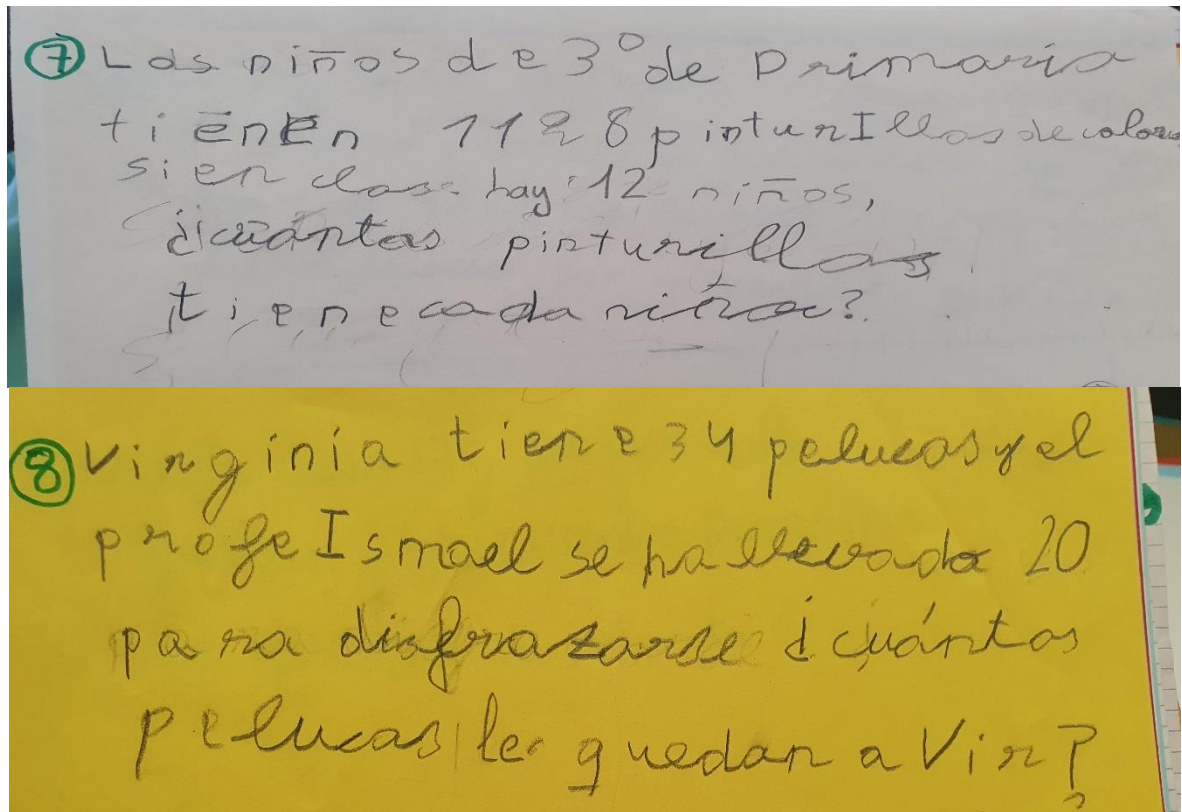 7 Los niños de 3º de Primaria
tienen 1128 pinturIllas de colores
si en clase hay 12 niños,
¿cuántas pinturillas
tiene cada niño?
8 Virginia tiene 34 pelucas y el
profe Ismael se ha llevado 20
para disfrazarse ¿cuántas
pelucas le quedan a Vir?